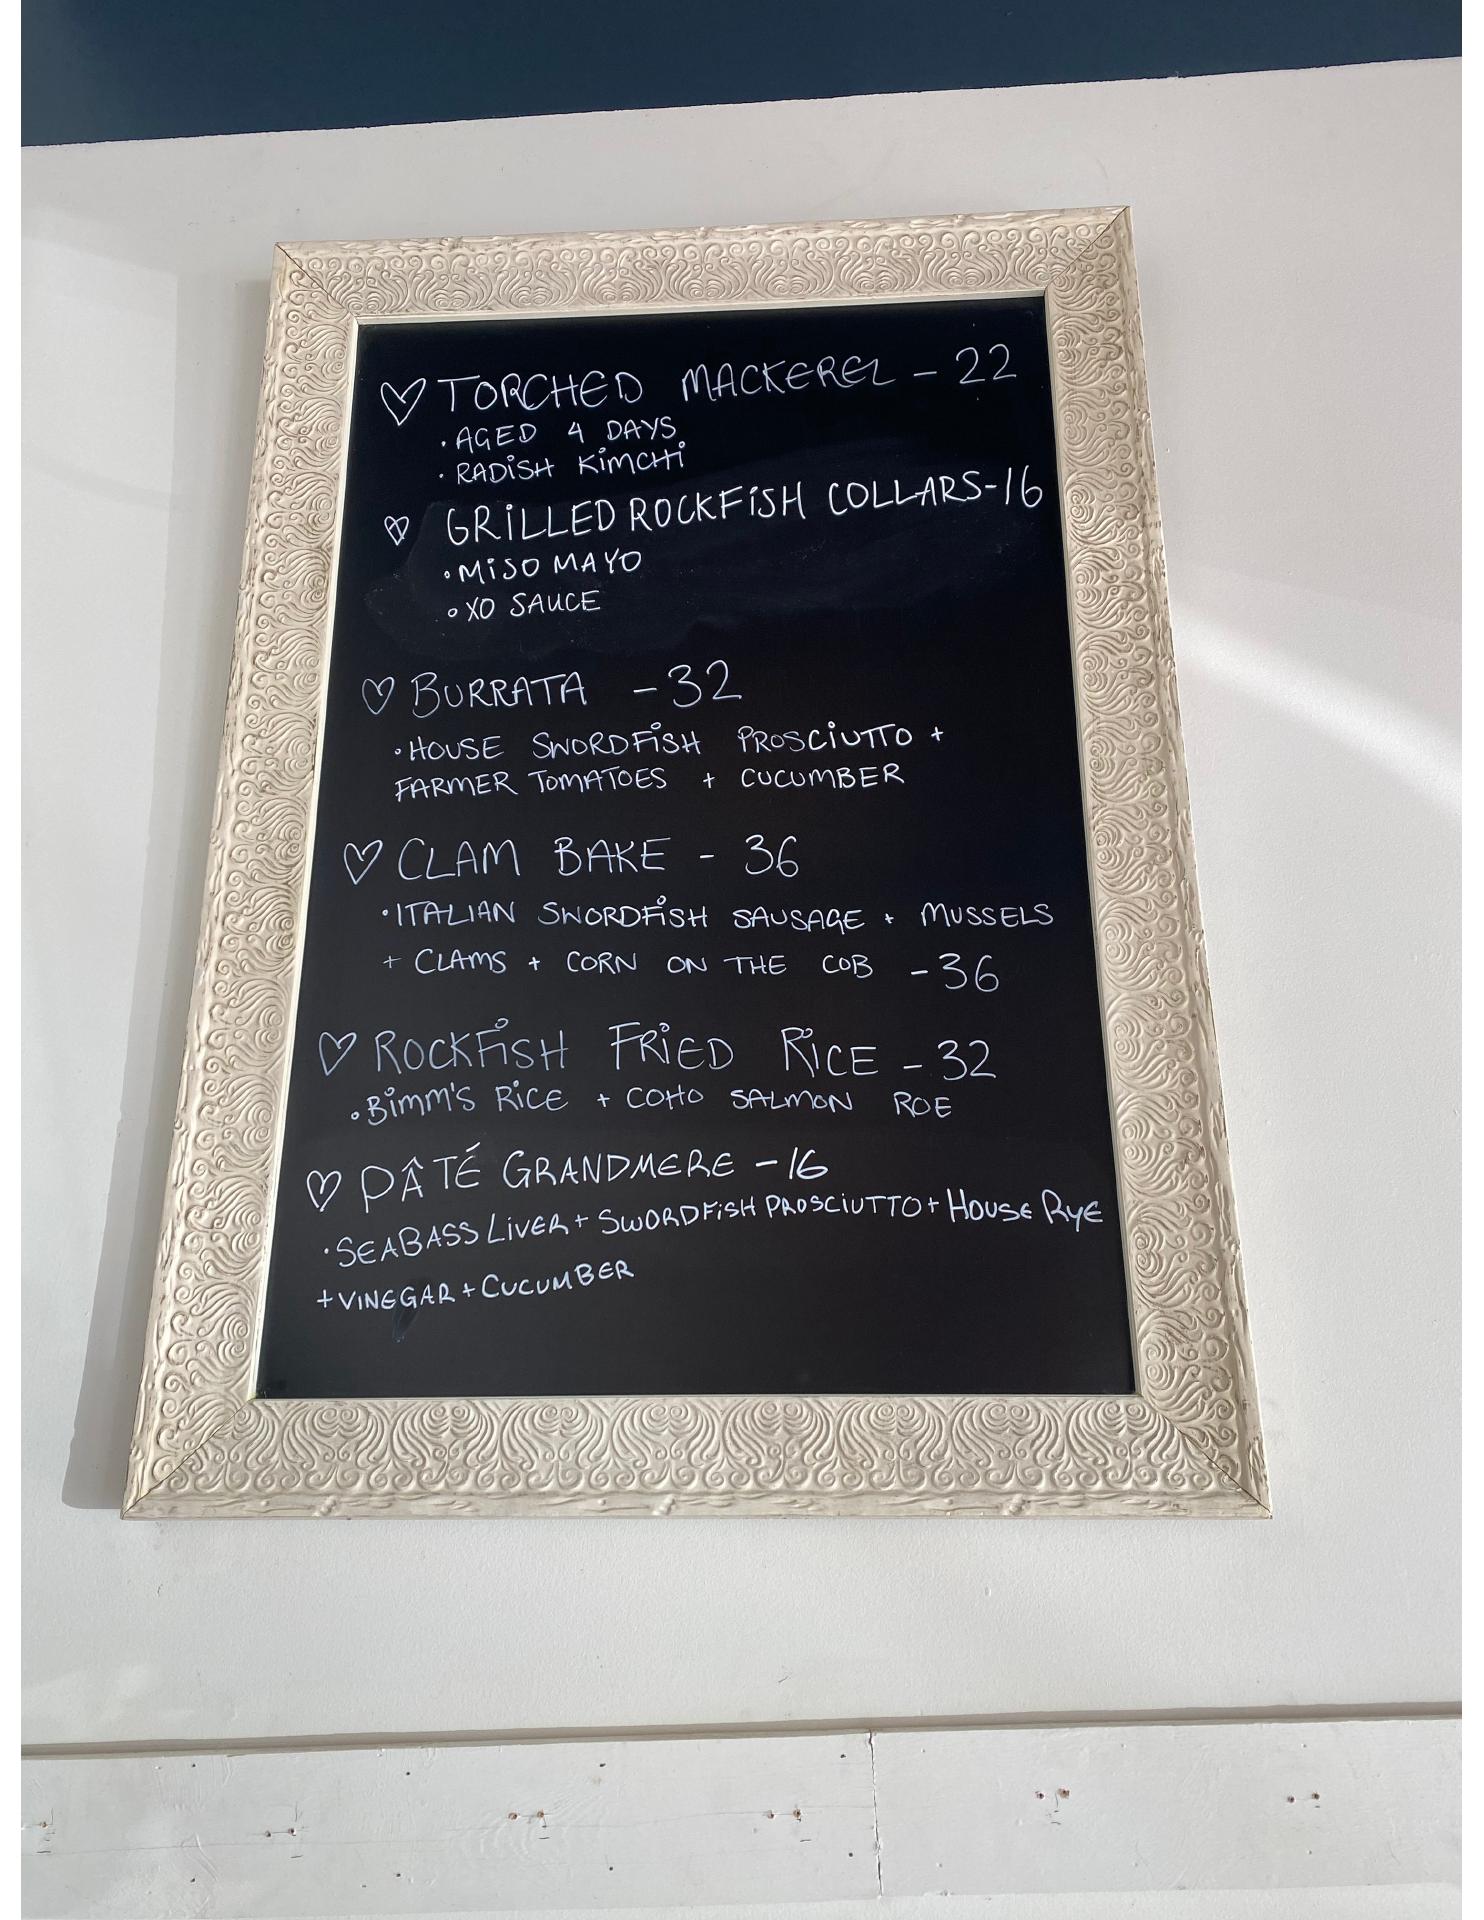 ♡ TORCHED MACKEREL - 22
· AGED 4 DAYS
· RADISH KIMCHI
♡ GRILLED ROCKFISH COLLARS-16
· MISO MAYO
· XO SAUCE
♡ BURRATA - 32
· HOUSE SWORDFISH PROSCIUTTO +
FARMER TOMATOES + CUCUMBER
♡ CLAM BAKE - 36
· ITALIAN SWORDFISH SAUSAGE + MUSSELS
+ CLAMS + CORN ON THE COB - 36
♡ ROCKFISH FRIED RICE - 32
· BIMM'S RICE + COHO SALMON ROE
♡ PÂTÉ GRANDMERE - 16
· SEABASS LIVER + SWORDFISH PROSCIUTTO + HOUSE RYE
+ VINEGAR + CUCUMBER